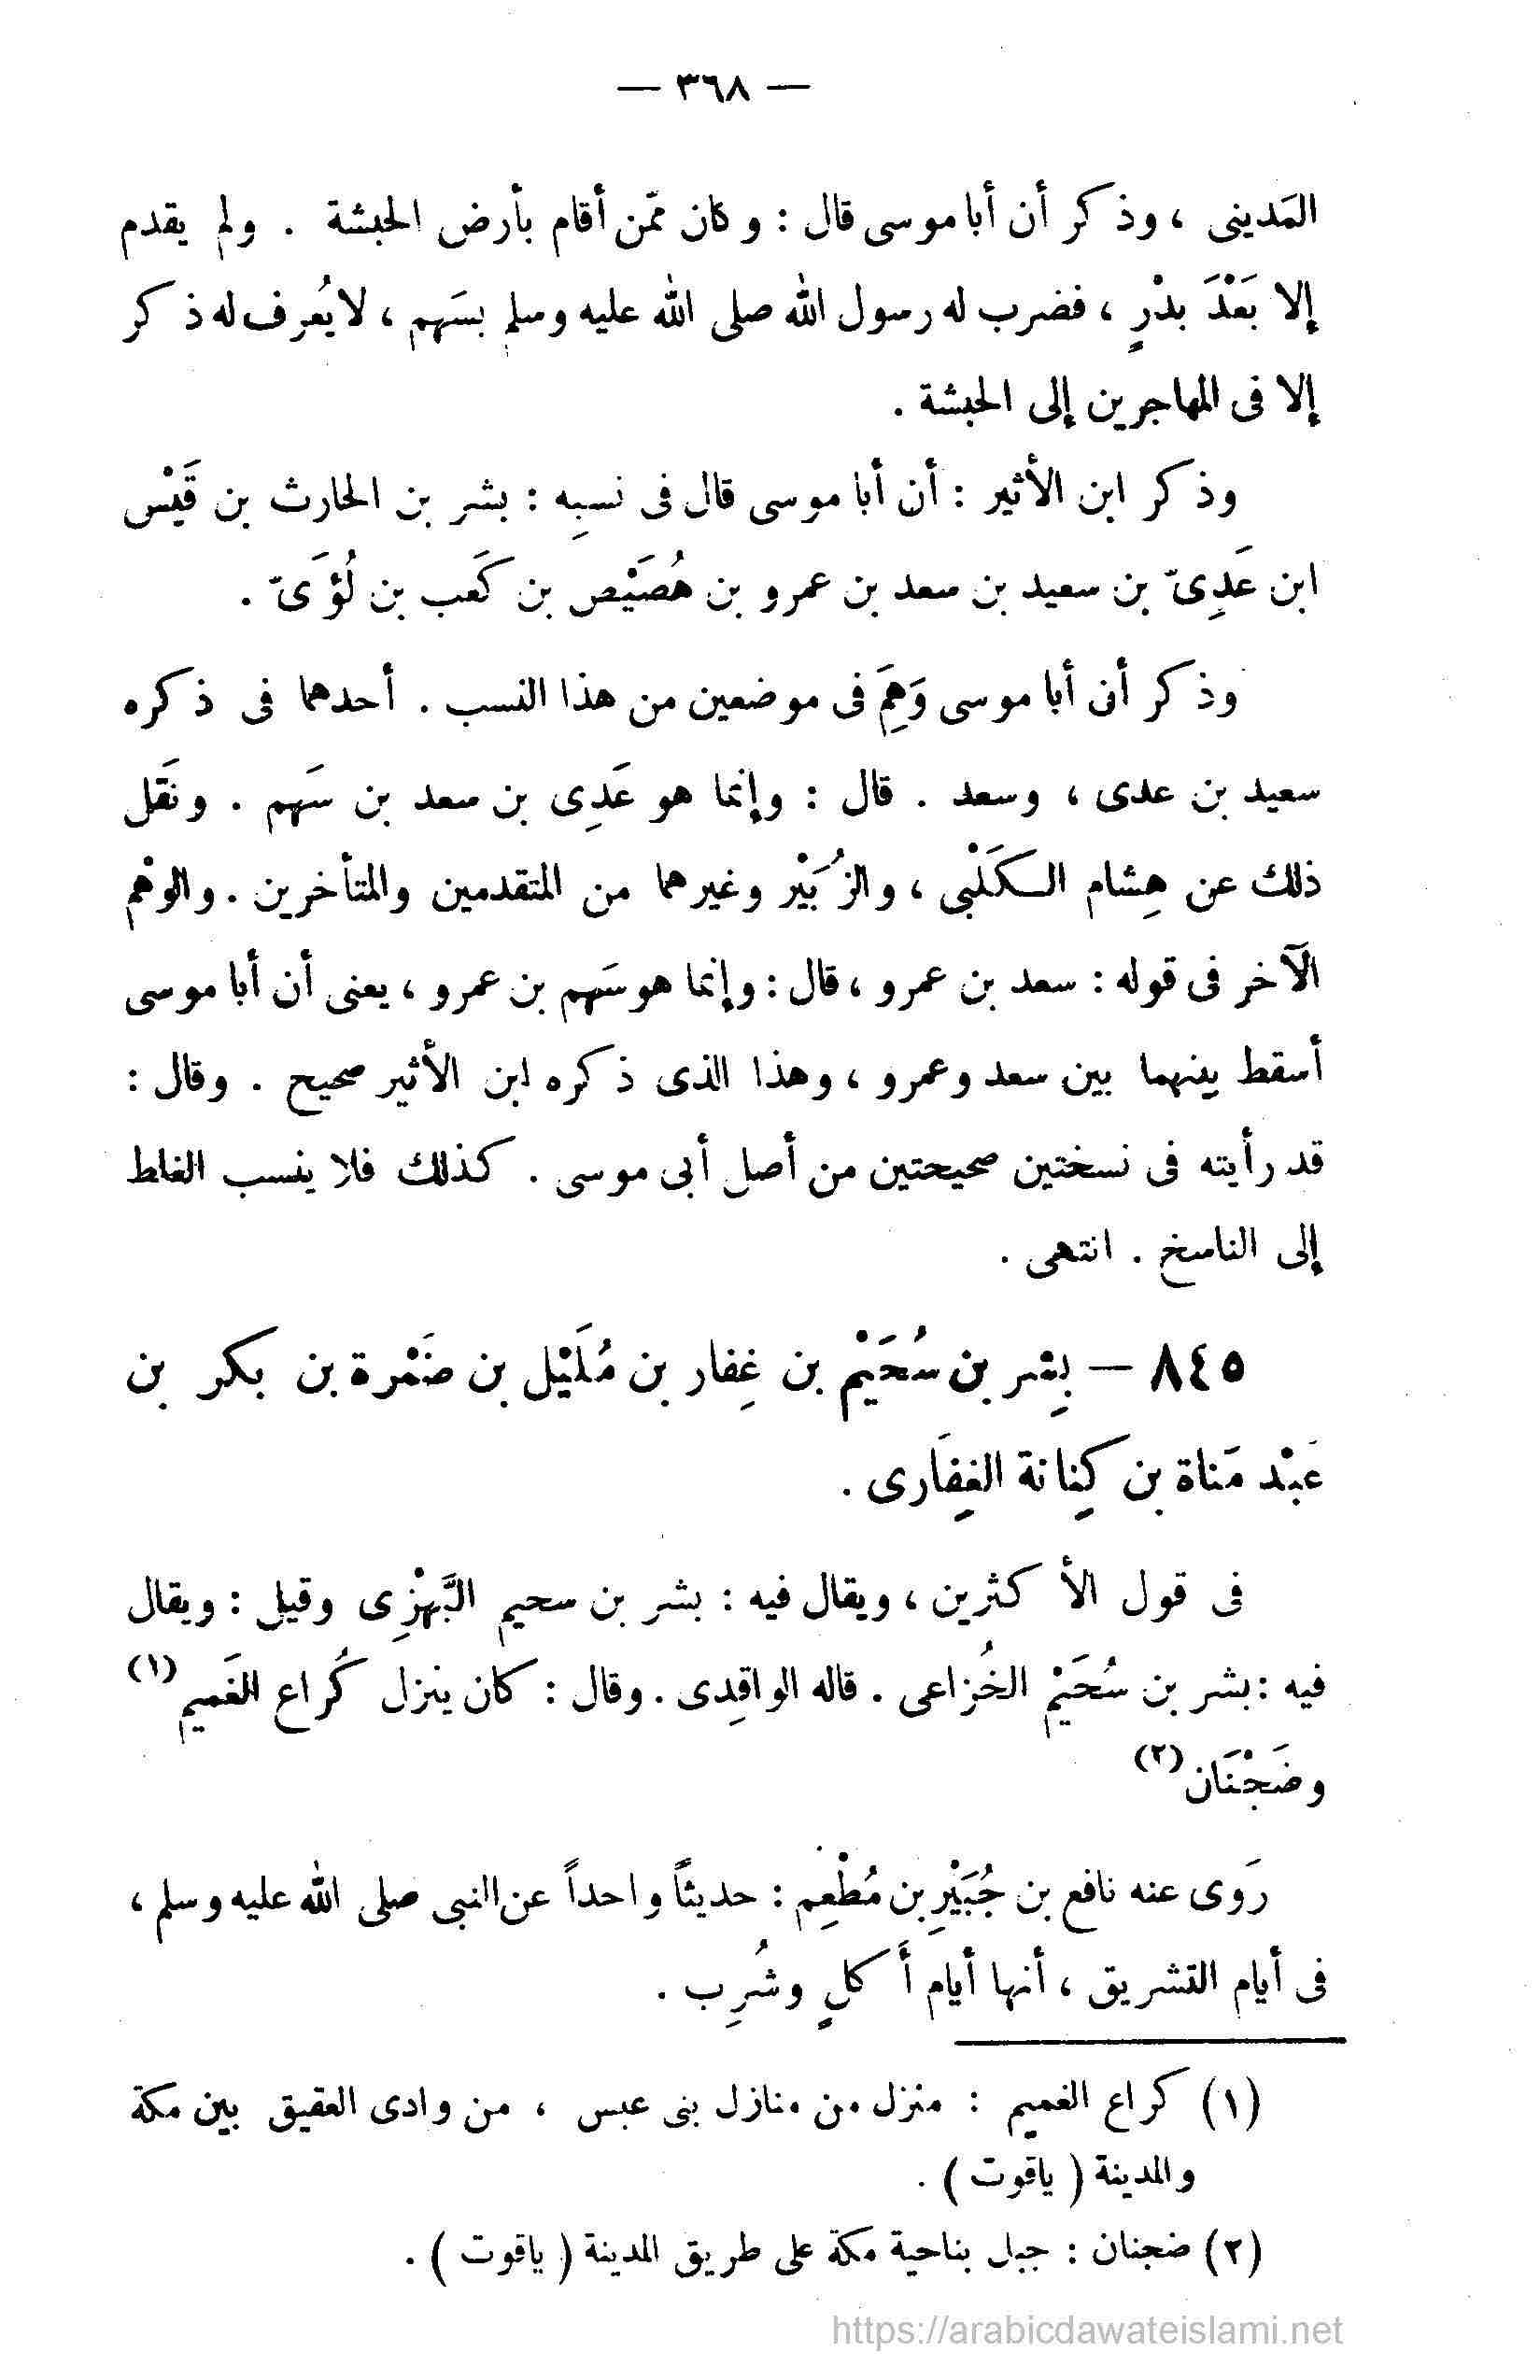 — ٣٦٨ —
المَدينى ، وذكر أن أبا موسى قال : وكان ممّن أقام بأرض الحبشة . ولم يقدم
إلا بَعْدَ بدْرٍ ، فضرب له رسول الله صلى الله عليه وسلم بسَهم ، لا يُعرف له ذكر
إلا فى المهاجرين إلى الحبشة .
وذكر ابن الأثير : أن أبا موسى قال فى نسبِه : بشر بن الحارث بن قَيْس
ابن عَدِىّ بن سعيد بن سعد بن عمرو بن هُصَيْص بن كَعب بن لُؤَىّ .
وذكر أنى أبا موسى وَهِمَ فى موضعين من هذا النسب . أحدهما فى ذكره
سعيد بن عدى ، وسعد . قال : وإنما هو عَدِى بن سعد بن سَهم . ونَقل
ذلك عن هِشام الكَلْبى ، والزُبَيْر وغيرهما من المتقدمين والمتأخرين . والوهْم
الآخر فى قوله : سعد بن عمرو ، قال : وإنما هو سَهم بن عمرو ، يعنى أن أبا موسى
أسقط بينهما بين سعد وعمرو ، وهذا الذى ذكره ابن الأثير صحيح . وقال :
قد رأيته فى نسختين صحيحتين من أصل أبى موسى . كذلك فلا ينسب الغلط
إلى الناسخ . انتهى .
٨٤٥ — بِشر بن سُحَيْم بن غِفار بن مُلَيْل بن ضَمْرة بن بكر بن
عَبْد مَناة بن كِنانة الغِفَارى .
فى قول الأكثرين ، ويقال فيه : بشر بن سحيم البَّهْزِى وقيل : ويقال
فيه : بشر بن سُحَيْم الخُزاعى . قاله الواقِدى . وقال : كان ينزل كُراع الغَميم (١)
وضَجْنَان (٢)
رَوى عنه نافع بن جُبَيْرِ بن مُطْعِم : حديثاً واحداً عن النبى صلى الله عليه وسلم ،
فى أيام التشريق ، أنها أيام أَكلٍ وشُرِب .
(١) كراع الغميم : منزل من منازل بنى عبس ، من وادى العقيق بين مكة
والمدينة ( ياقوت ) .
(٢) ضجنان : جبل بناحية مكة على طريق المدينة ( ياقوت ) .
https://arabicdawateislami.net